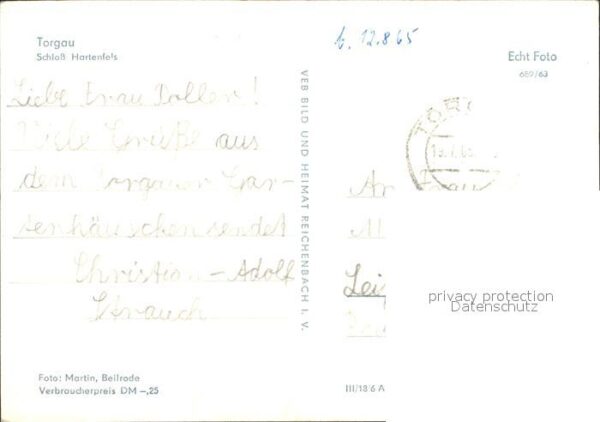 Torgau
Schloß Hartenfels
b. 12.8.65
Echt Foto
689/63
Liebe Frau Doller!
Viele Grüße aus
dem Torgauer Gar-
tenhäuschen sendet
Christian-Adolf
Strauch
VEB BILD UND HEIMAT REICHENBACH I. V.
TORG
An Frau
M
Leip
privacy protection
Datenschutz
Foto: Martin, Beilrode
Verbraucherpreis DM -,25
III/18/6 A